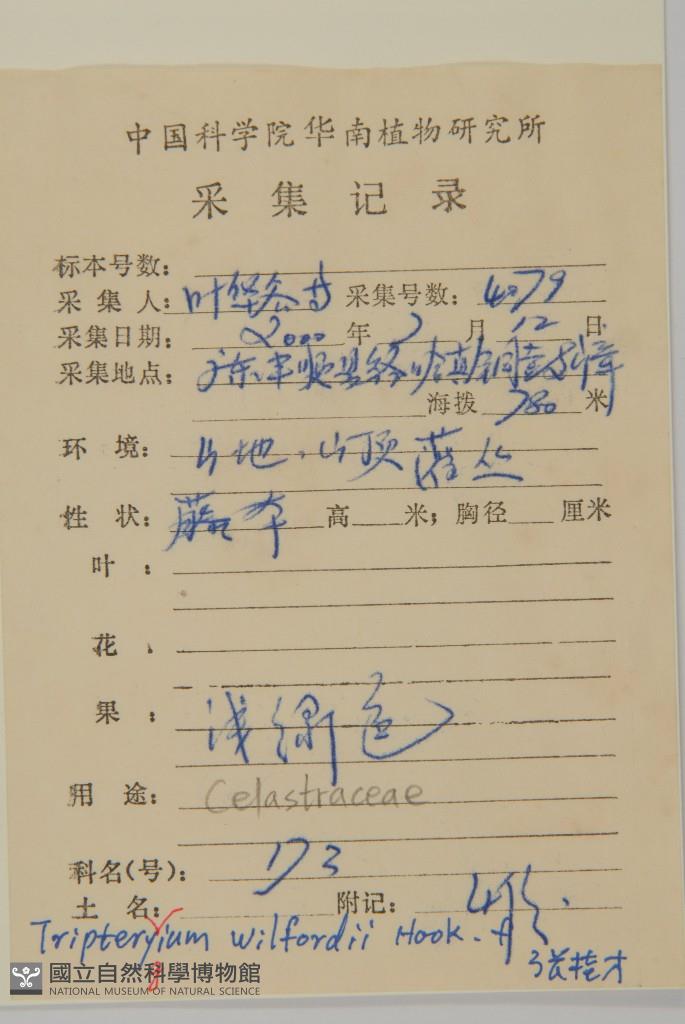 中国科学院华南植物研究所
采集记录
标本号数：
采集人：叶华谷 采集号数：4079
采集日期：2000年7月12日
采集地点：广东丰顺县 镇铜鼓嶂
海拨 780 米
环境： 地，山顶灌丛
性状：藤本 高 米；胸径 厘米
叶：
花：
果：浅绿色
用途：Celastraceae
科名(号)：173
土名： 附记：4份.
Tripterygium wilfordii Hook. f
张桂才
國立自然科學博物館
NATIONAL MUSEUM OF NATURAL SCIENCE